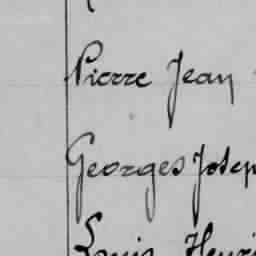 Pierre Jean
Georges Josep
Louis Henri